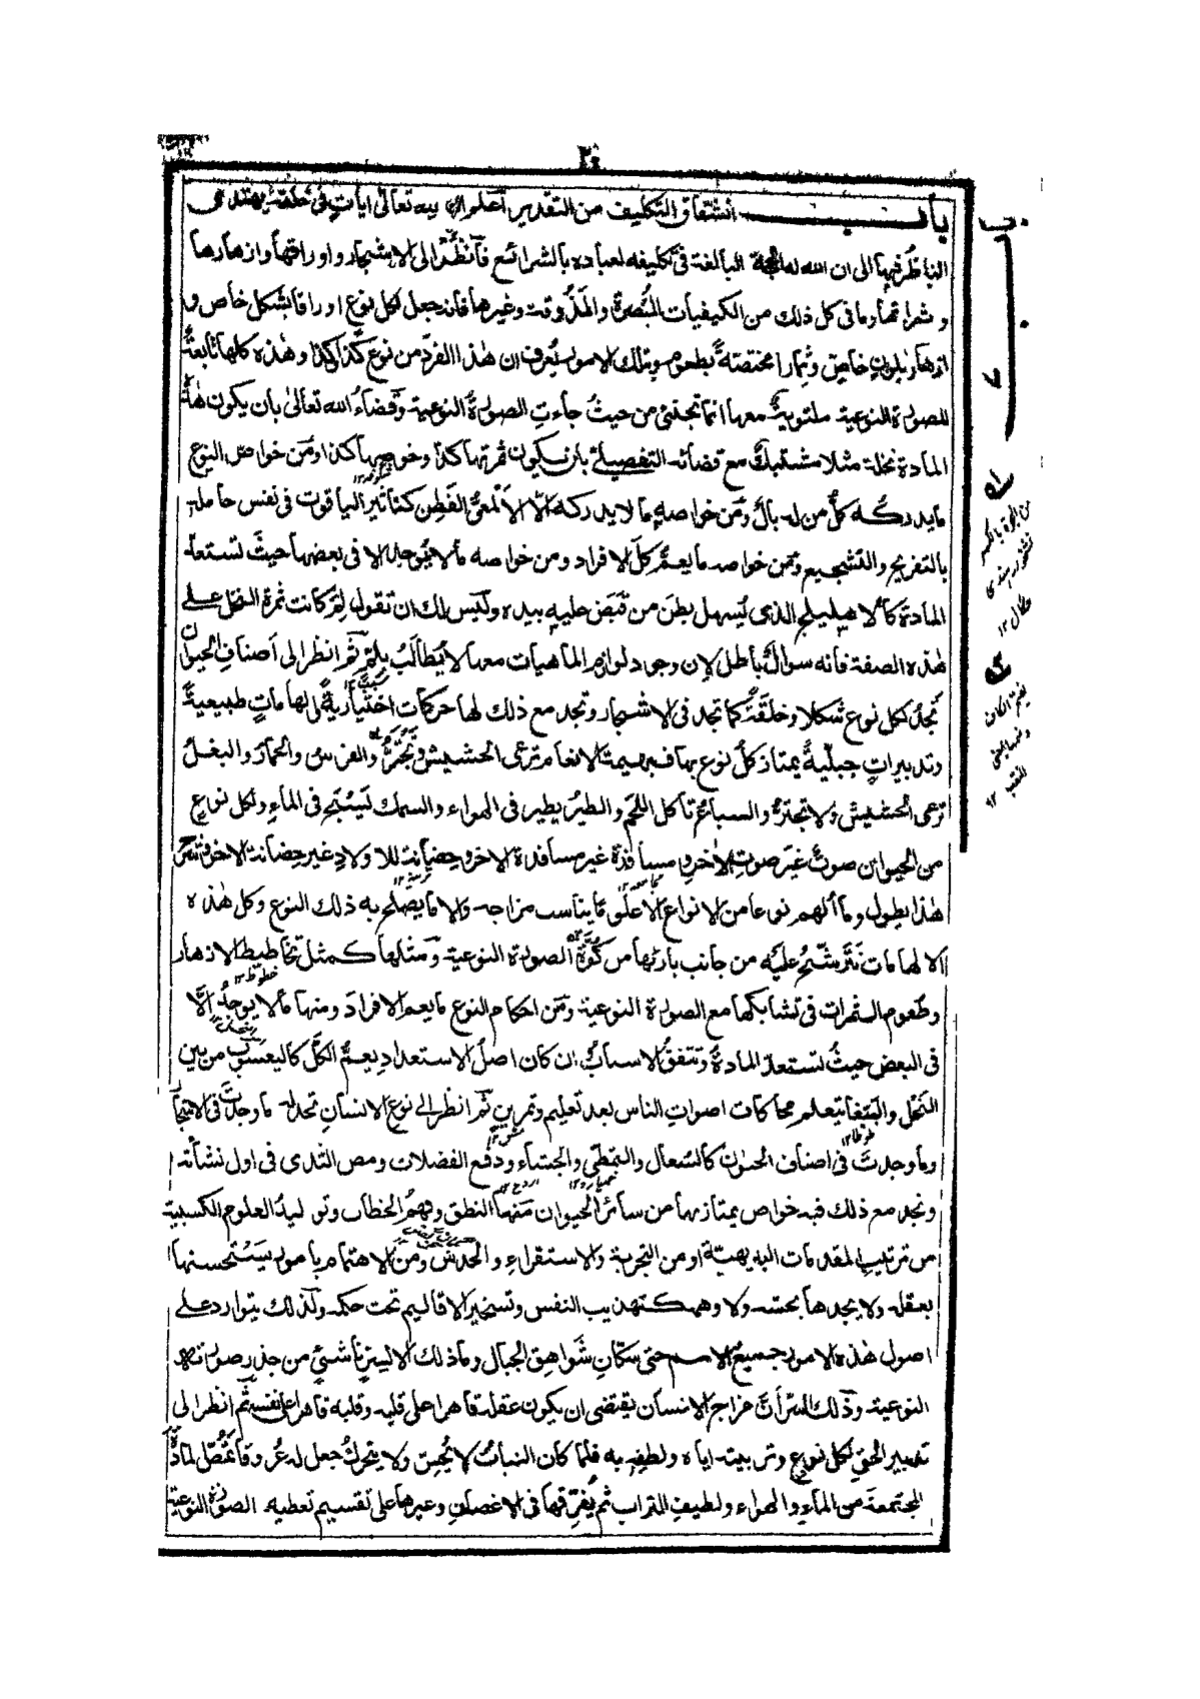 ٢٠
باب انشقاق التكليف من التقدير اعلم ان لله تعالى ايات في خلقه يهتدي
الناظر فيها الى ان الله له الحجة البالغة في تكليفه لعباده بالشرائع فانظر الى الاشجار واوراقها وازهارها
وثمراتها وما في كل ذلك من الكيفيات المبصرة والمذوقة وغيرها فانه جعل لكل نوع اوراقا بشكل خاص و
ازهارا بلون خاص وثمارا مختصة بطعوم وبتلك الامور يعرف ان هذا الفرد من نوع كذا وكذا وهذه كلها تابعة
للصورة النوعية ملتوية معها انما تجئ من حيث جاءت الصورة النوعية وقضاء الله تعالى بان يكون هذه
المادة نخلة مثلا مشتبك مع قضائه التفصيلي بان يكون ثمرتها كذا وخوصها كذا ومن خواص النوع
ما يدركه كل من له بال ومن خواصه ما لا يدركه الا الالمعي الفطن كتاثير الياقوت في نفس حامله
بالتفريح والتشجيع ومن خواصه ما يعم كل الافراد ومن خواصه ما لا يوجد الا في بعضها حيث تستعد
المادة كالاهليلج الذي يسهل بطن من قبض عليه بيده وليس لك ان تقول لم كانت ثمرة النخل على
هذه الصفة فانه سوال باطل لان وجود لوازم الماهيات معها لا يطالب بلم ثم انظر الى اصناف الحيوان
تجد لكل نوع شكلا وخلقة كما تجد في الاشجار وتجد مع ذلك لها حركات اختيارية والهامات طبيعية
وتدبيرات جبلية يمتاز كل نوع بها فبهيمة الانعام ترعى الحشيش وتجتر والفرس والحمار والبغل
ترعى الحشيش ولا تجتر والسباع تاكل اللحم والطير يطير في الهواء والسمك يسبح في الماء ولكل نوع
من الحيوان صوت غير صوت الاخر ومسافدة غير مسافدة الاخر وحضانة للاولاد غير حضانة الاخر وشرح
هذا يطول وما الهم نوعا من الانواع الا علوما يناسب مزاجه والا ما يصلح به ذلك النوع وكل هذه
الالهامات تترشح عليه من جانب بارئها من كوة الصورة النوعية ومثلها كمثل تخاطيط الازهار
وطعوم الثمرات في تشابكها مع الصورة النوعية ومن احكام النوع ما يعم الافراد ومنها ما لا يوجد الا
في البعض حيث تستعد المادة وتتفق الاسباب وان كان اصل الاستعداد يعم الكل كاليعسوب من بين
النحل والببغا يتعلم محاكات اصوات الناس بعد تعليم وتمرين ثم انظر الى نوع الانسان تجد له ما وجدت في الاشجار
وما وجدت في اصناف الحيوان كالسعال والتمطي والجشاء ودفع الفضلات ومص الثدي في اول نشأته
ونجد مع ذلك فيه خواص يمتاز بها من سائر الحيوان منها النطق وفهم الخطاب وتوليد العلوم الكسبية
من ترتيب المقدمات البديهية او من التجربة والاستقراء والحدس ومن الاهتمام بامور يستحسنها
بعقله ولا يجدها بحسه ولا وهمه كتهذيب النفس وتسخير الاقاليم تحت حكمه ولذلك يتوارد على
اصول هذه الامور جميع الامم حتى سكان شواهق الجبال وما ذلك الا لسر ناشئ من جذر صورته
النوعية وذلك السر ان مزاج الانسان يقتضي ان يكون عقله قاهرا على قلبه وقلبه قاهرا على نفسه ثم انظر الى
تدبير الحق لكل نوع وتربيته اياه ولطفه به فلما كان النبات لا يحس ولا يتحرك جعل له عروقا تمص المادة
المجتمعة من الماء والهواء ولطيف التراب ثم يفرقها في الاغصان وغيرها على تقسيم تعطيه الصورة النوعية